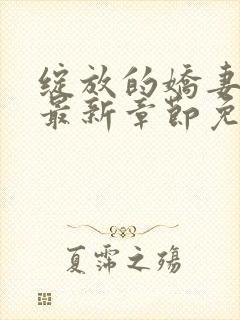 绽放的娇妻
最新章节免
夏霈之殇